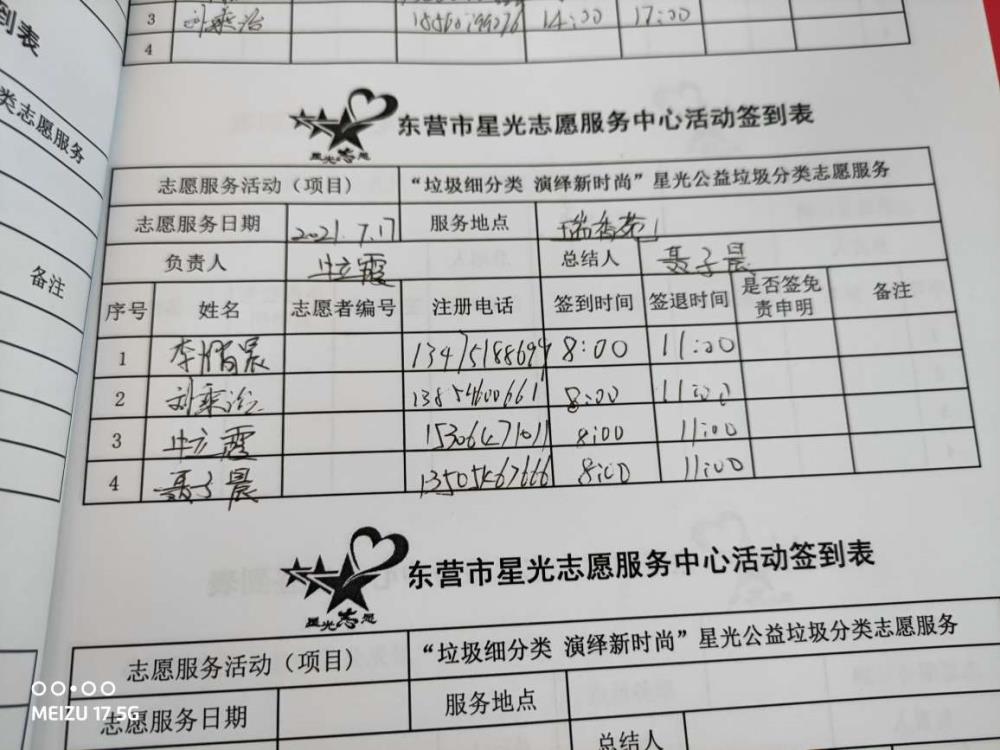 到表
类志愿服务
备注
3 刘乘治 14:00 17:00
4
星光志愿
东营市星光志愿服务中心活动签到表
志愿服务活动（项目） “垃圾细分类 演绎新时尚”星光公益垃圾分类志愿服务
志愿服务日期 2021.7.17 服务地点 瑞香苑
负责人 牛立霞 总结人 聂子晨
序号 姓名 志愿者编号 注册电话 签到时间 签退时间 是否签免责申明 备注
1 李鹏晨 8:00 11:00
2 刘乘治 13854600661 8:00 11:00
3 牛立霞 15306471011 8:00 11:00
4 聂子晨 13505467666 8:00 11:00
星光志愿
东营市星光志愿服务中心活动签到表
志愿服务活动（项目） “垃圾细分类 演绎新时尚”星光公益垃圾分类志愿服务
志愿服务日期 服务地点
总结人
MEIZU 17 5G